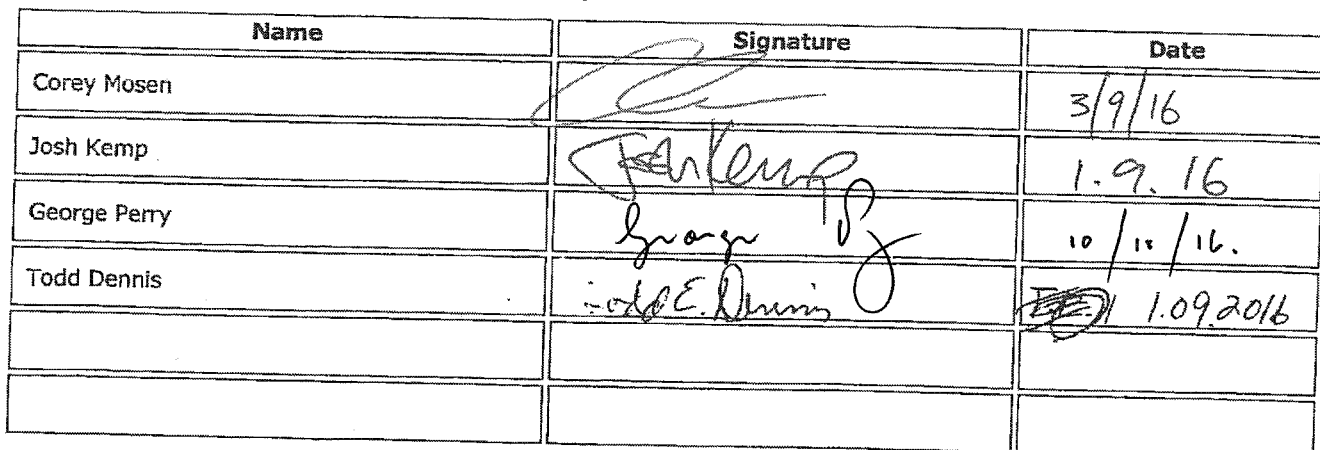 Name Signature Date
Corey Mosen 3/9/16
Josh Kemp Josh Kemp 1.9.16
George Perry George 10/10/16.
Todd Dennis Todd E. Dennis 1.09.2016